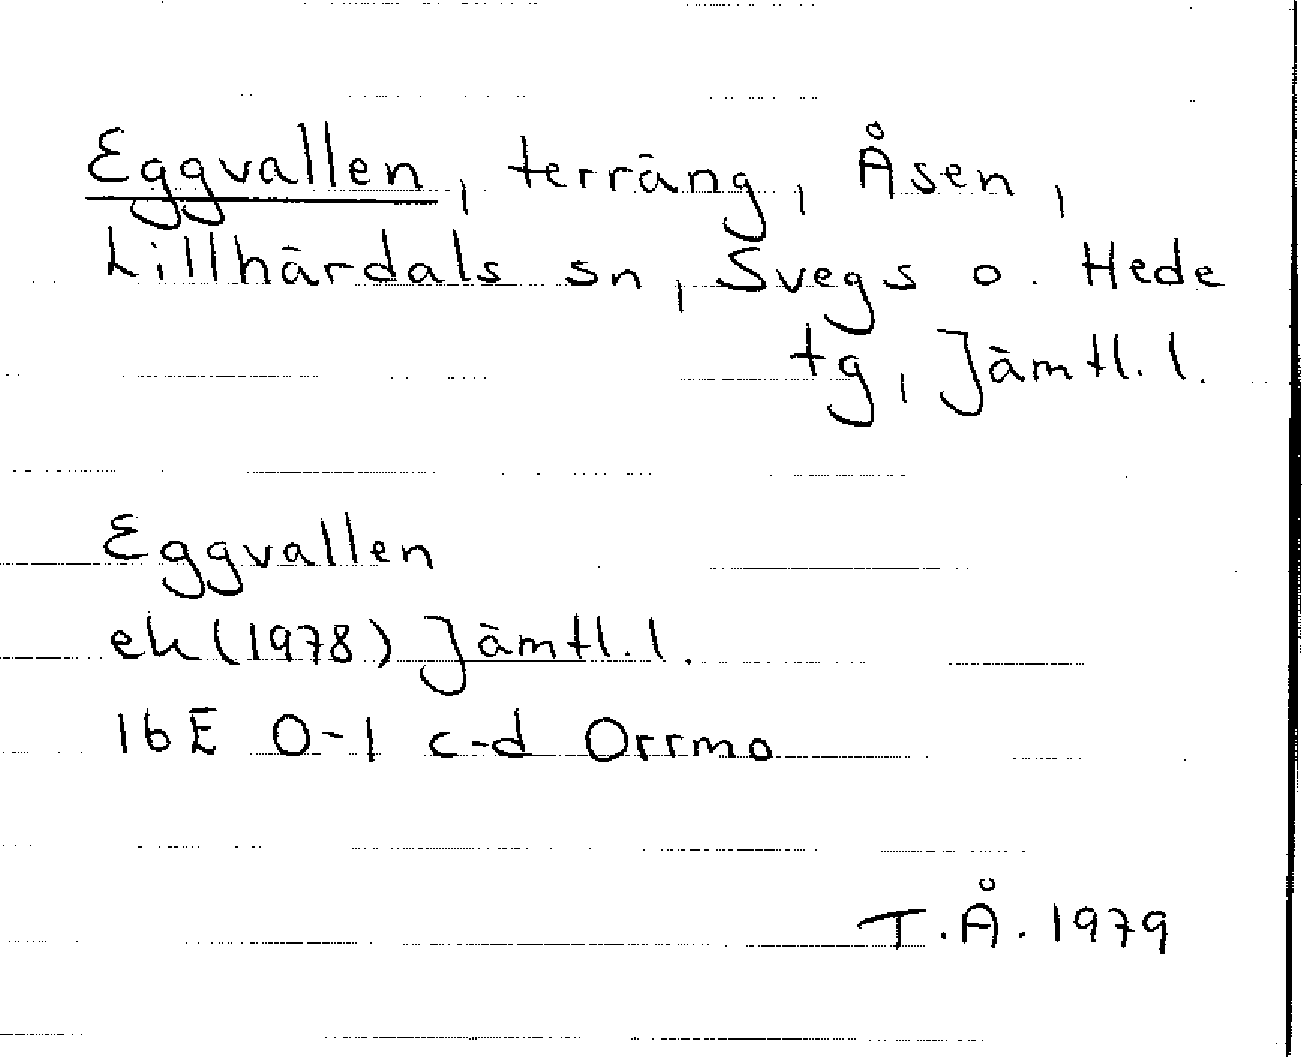 Eggvallen, terräng, Åsen,
Lillhärdals sn, Svegs o. Hede
tg, Jämtl. l.
Eggvallen
ek (1978) Jämtl. l.
16E 0-1 c-d Orrmo
T.Å. 1979